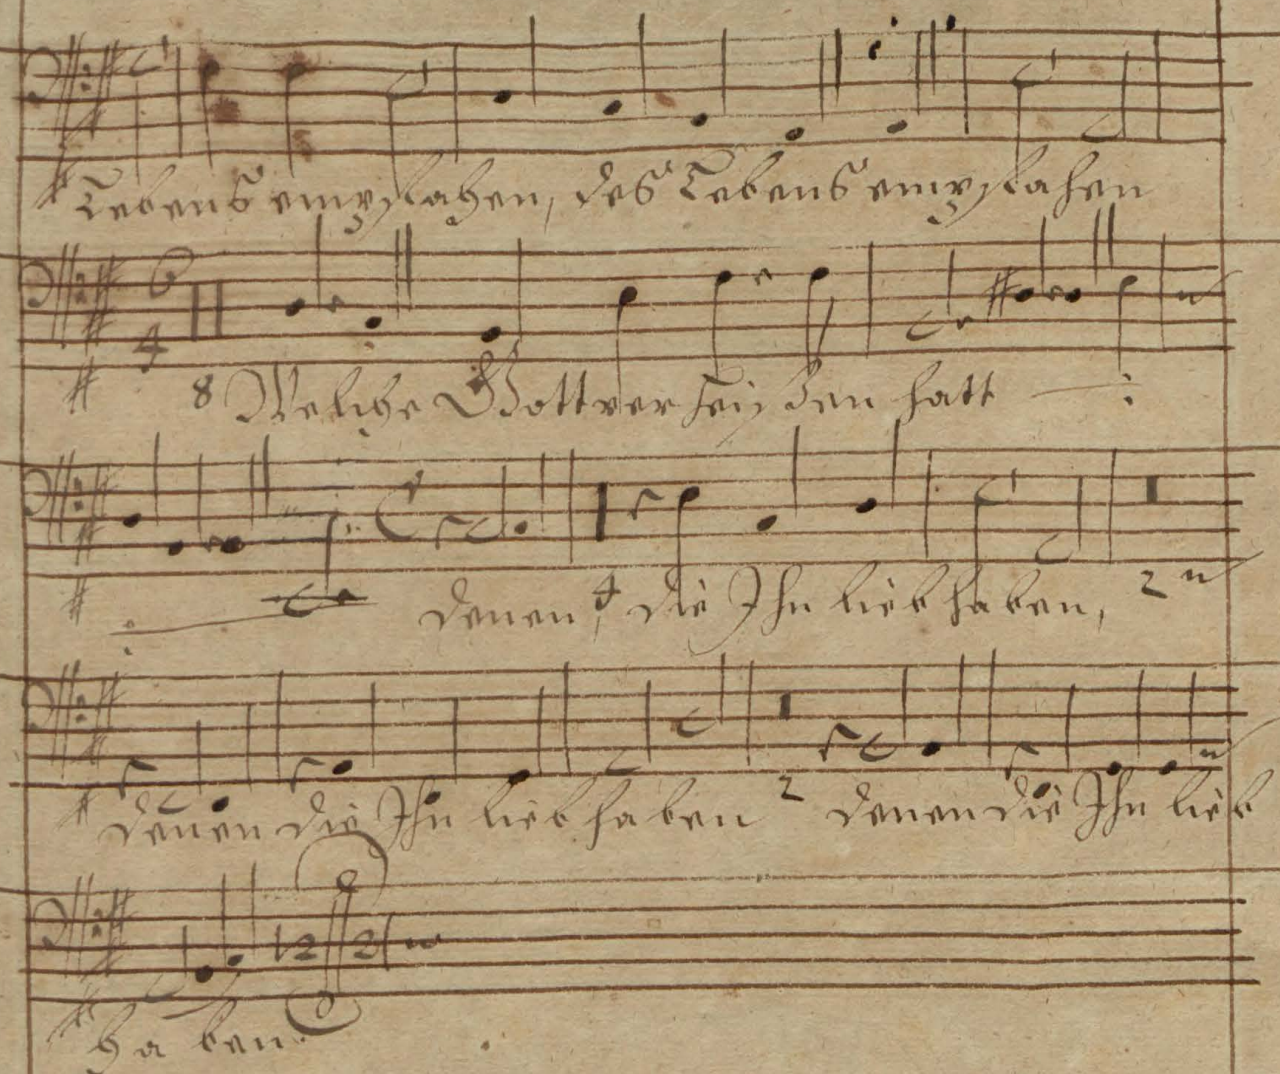 Lebens empfahen, des Lebens empfahen
6
4
8 Welche Gott verheißen hatt
denen, 4 die Ihn lieb haben, 2
denen die Ihn lieb haben 2 denen die Ihn lieb
haben.